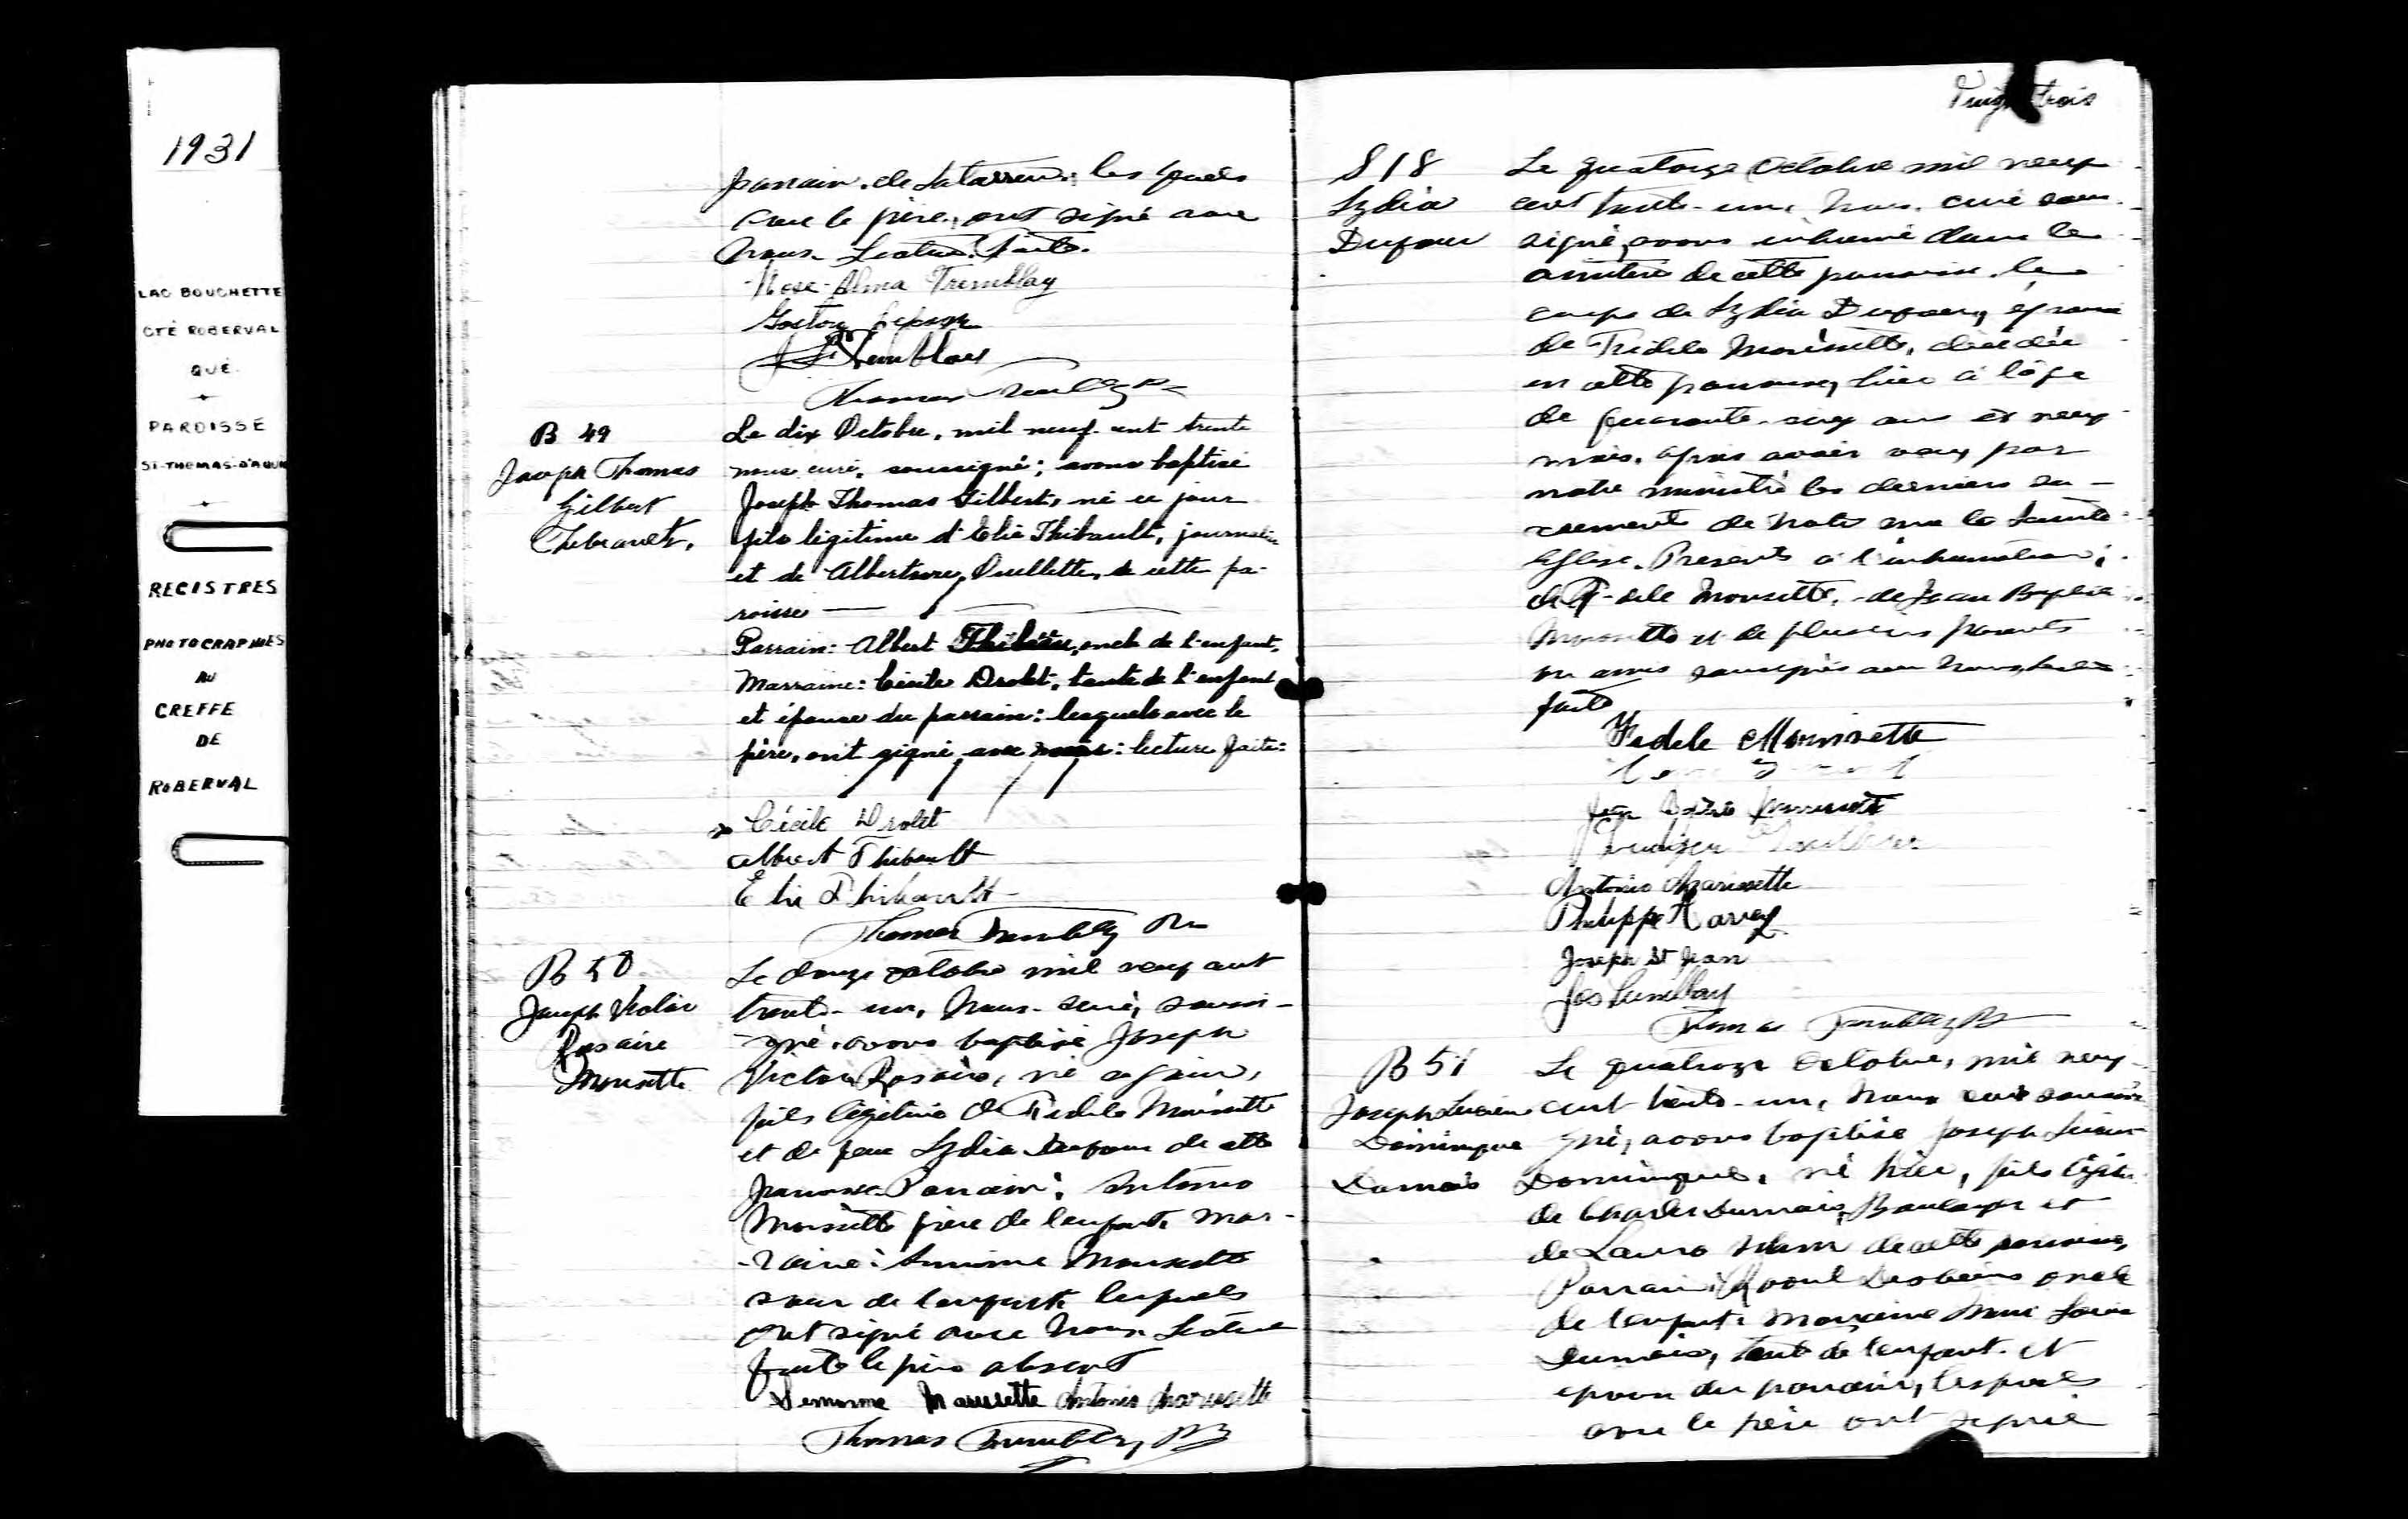 1931
LAC BOUCHETTE
CTÉ ROBERVAL
QUÉ.
PAROISSE
ST-THOMAS-D'AQUIN
REGISTRES
PHOTOGRAPHIÉS
AU
GREFFE
DE
ROBERVAL
parrain, de les quels
avec le père, ont signé avec
nous. Lecture faite.
Rose-Alma Tremblay
Thomas Tremblay Ptre
B 49
Joseph Thomas
Gilbert
Thibeault.
Le dix Octobre, mil neuf cent trente
nous curé, soussigné; avons baptisé
Joseph Thomas Gilbert, né ce jour
fils légitime d'Elie Thibault, journalier
et de Albertine Ouellette, de cette pa-
roisse —
Parrain: Albert oncle de l'enfant,
Marraine: Cécile Drolet, tante de l'enfant
et épouse du parrain: lesquels avec le
père, ont signé avec nous: lecture faite:
Cécile Drolet
Albert Thibault
Elie Thibault
Thomas Tremblay Ptre
B 50
Joseph Victor
Rosaire
Morissette
Le douze octobre mil neuf cent
trente-un, Nous, curé, soussi-
gné, avons baptisé Joseph
Victor Rosaire, né ce jour,
fils légitime de Fidele Morissette
et de feue Lydia Dufour de cette
paroisse. Parrain: Antonio
Morissette frère de l'enfant, mar-
raine: Morissette
soeur de l'enfant lesquels
ont signé avec Nous. Lecture
faite le père absent
Morissette Antonio Morissette
Thomas Tremblay, Ptre
Vingt trois
S 18
Lydia
Dufour
Le quatorze Octobre mil neuf
cent trente-un, Nous, curé sous-
signé, avons inhumé dans le
cimetière de cette paroisse, le
corps de Lydia Dufour, épouse
de Fidele Morissette, décédée
en cette paroisse, hier à l'âge
de quarante ans et neuf
mois, après avoir reçu par
notre ministère les derniers sa-
crements de Notre mère la Sainte
Eglise. Présents à l'inhumation:
de Fidele Morissette, de Jean Baptiste
Morissette et de plusieurs parents
et amis soussignés avec Nous, lecture
faite
Fidele Morissette
Jean Baptiste Morissette
Antonio Morissette
Philippe Harvey
Joseph St Jean
Jos Tremblay
Thomas Tremblay Ptre
B 51
Joseph Lucien
Dominique
Dumais
Le quatorze Octobre, mil neuf
cent trente-un, Nous curé soussi-
gné, avons baptisé Joseph Lucien
Dominique, né hier, fils légitime
de Charles Dumais, Boulanger et
de Laura de cette paroisse,
Parrain: Raoul Desbiens oncle
de l'enfant. Marraine
Dumais, tante de l'enfant et
épouse du parrain, lesquels
avec le père ont signé